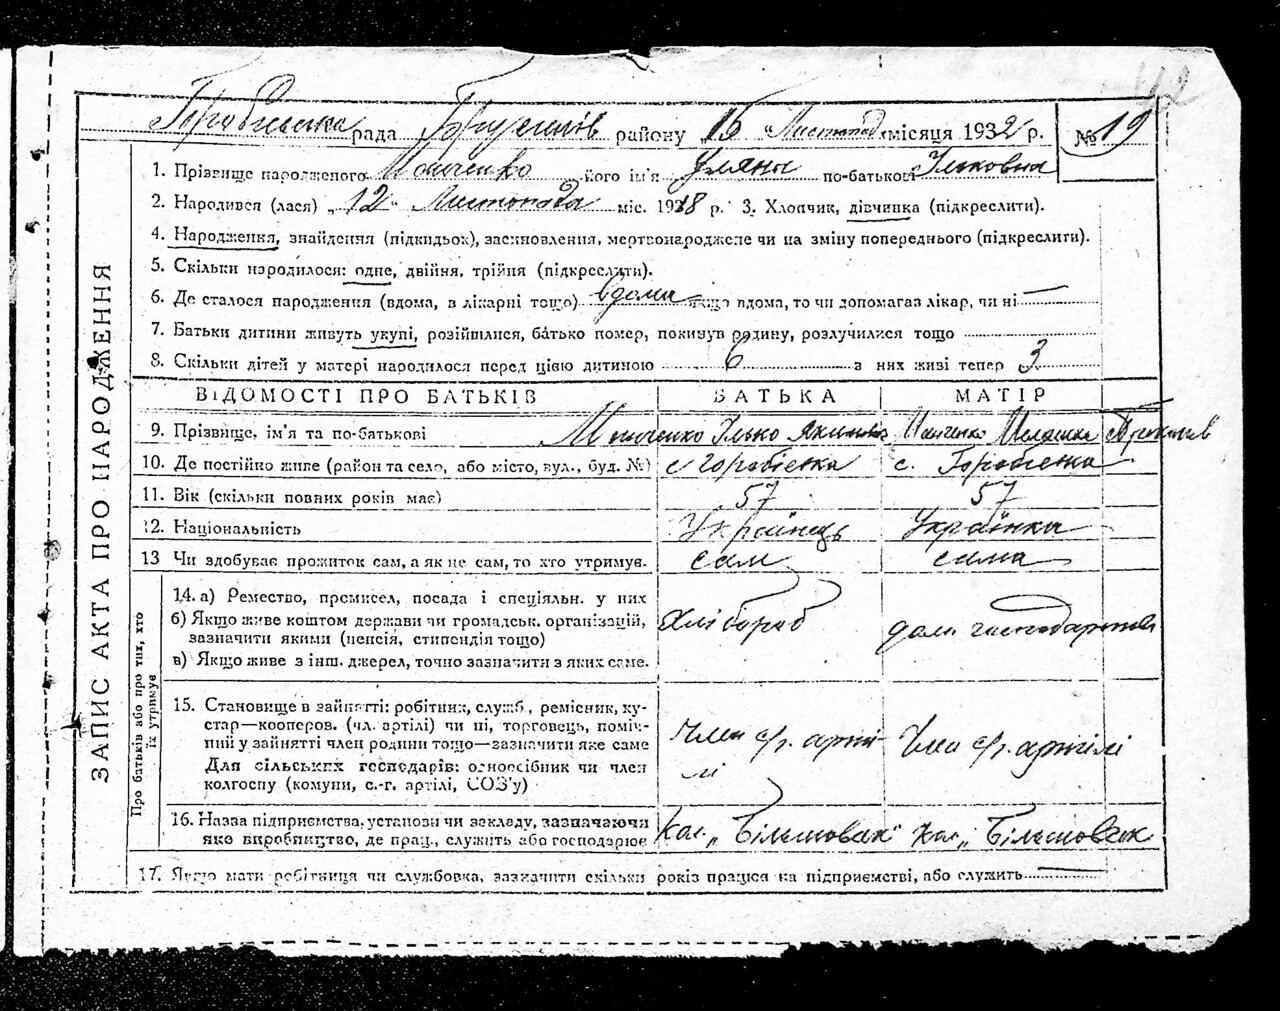 рада Брусилів району 16 Листопад. місяця 1932 р. № 19
1. Прізвище народженого його ім'я Уляна по-батькові Ільковна
2. Народився (лася) „12" Листопада міс. 1918 р. 3. Хлопчик, дівчинка (підкреслити).
4. Народження, знайдення (підкидьок), засиновлення, мертвонароджене чи на зміну попереднього (підкреслити).
5. Скільки народилося: одне, двійня, трійня (підкреслити).
6. Де сталося народження (вдома, в лікарні тощо) вдома якщо вдома, то чи допомагав лікар, чи ні —
7. Батьки дитини живуть укупі, розійшлися, батько помер, покинув родину, розлучилися тощо
8. Скільки дітей у матері народилося перед цією дитиною 6 з них живі тепер 3
ЗАПИС АКТА ПРО НАРОДЖЕННЯ
ВІДОМОСТІ ПРО БАТЬКІВ БАТЬКА МАТІР
9. Прізвище, ім'я та по-батькові Ілько
10. Де постійно живе (район та село, або місто, вул., буд. №) с Горобіевка с. Горобіевка
11. Вік (скільки повних років має) 57 57
12. Національність Українець Українка
13 Чи здобуває прожиток сам, а як не сам, то хто утримує. сам сама
Про батьків або про тих, хто
їх утримує
14. а) Ремество, промисел, посада і спеціяльн. у них
б) Якщо живе коштом держави чи громадськ. організацій,
зазначити якими (пенсія, стипендія тощо)
в) Якщо живе з інш. джерел, точно зазначити з яких саме.
Хлібороб
15. Становище в зайнятті: робітник, служб., ремісник, ку-
стар—кооперов. (чл. артілі) чи ні, торговець, поміч-
ний у зайнятті член родини тощо—зазначити яке саме
Для сільських господарів: одноосібник чи член
колгоспу (комуни, с.-г. артілі, СОЗ'у)
Член с/г. арті
лі
Член с/г. артілі
16. Назва підприємства, установи чи закладу, зазначаючи
яке виробництво, де прац., служить або господарює
Кол. „Більшовик" Кол. „Більшовик
17. Якщо мати робітниця чи службовка, зазначити скільки років працює на підприємстві, або служить —